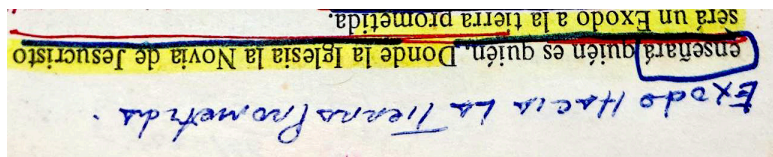 Exodo Hacia La Tierra Prometida.
enseñará quién es quién. Donde la Iglesia la Novia de Jesucristo
será un Exodo a la tierra prometida.